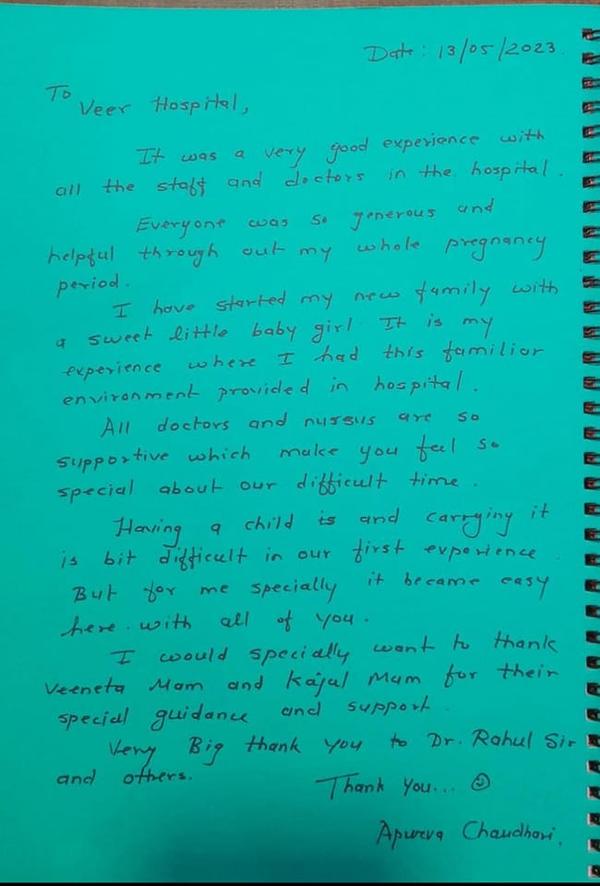 Date: 13/05/2023
To
Veer Hospital,
It was a very good experience with
all the staff and doctors in the hospital.
Everyone was so generous and
helpful through out my whole pregnancy
period.
I have started my new family with
a sweet little baby girl. It is my
experience where I had this familior
environment provided in hospital.
All doctors and nussus are so
supportive which make you feel so
special about our difficult time.
Having a child is and carrying it
is bit difficult in our first experience.
But for me specially it became easy
here. with all of you.
I would specially want to thank
Veeneta Mam and Kajal Mam for their
special guidance and support.
Very Big thank you to Dr. Rahul Sir
and others.
Thank You... ☺
Apurva Chaudhari.